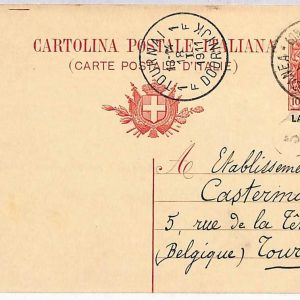 CARTOLINA POSTALE ITALIANA
(CARTE POSTALE D'ITALIE)
TOURNAI 1
1 F DOORNIJK 1 F
18
1911
NEA
LA
10
A Etablisseme
Casterma
5, rue de la Té
(Belgique) Tour